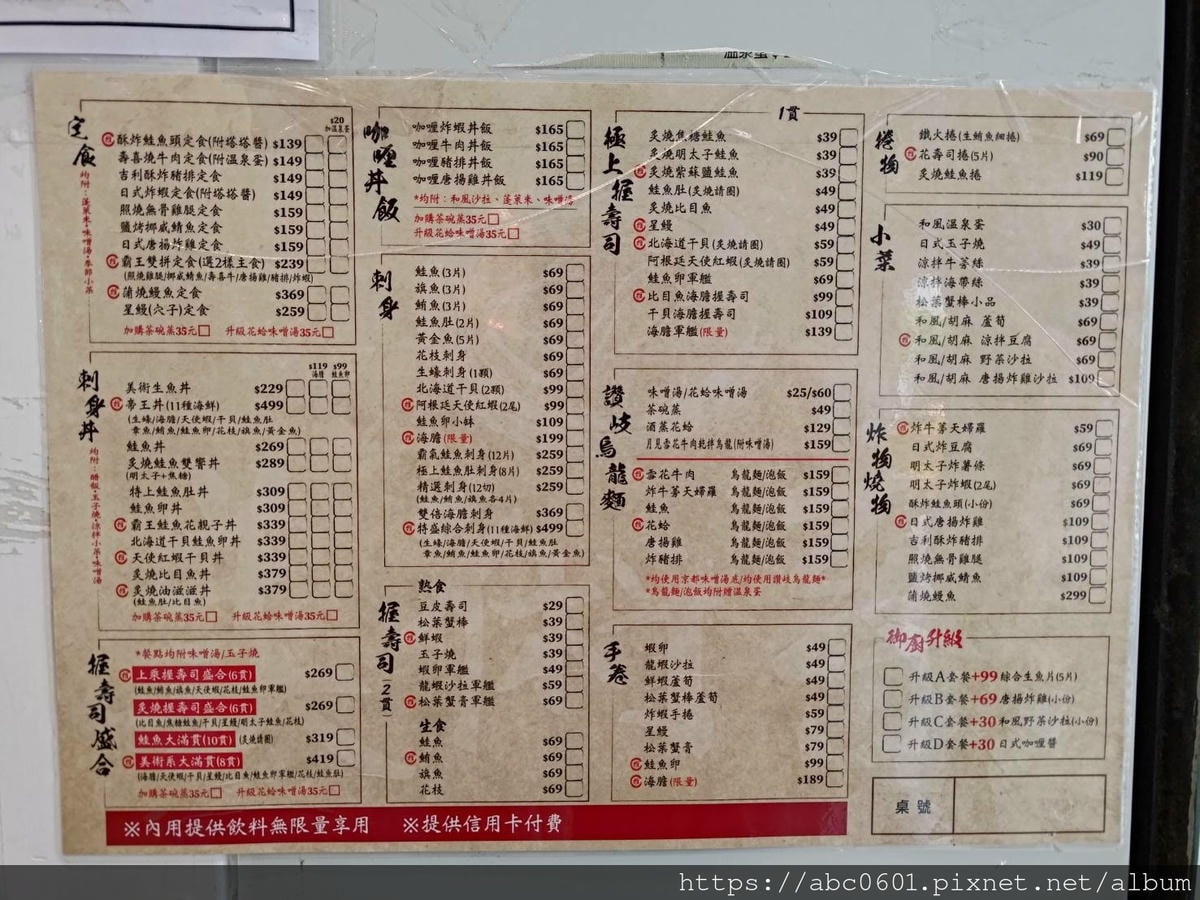 定食
均附：蓬萊米、味噌湯、季節小菜
$20
加溫泉蛋
酥炸鮭魚頭定食(附塔塔醬) $139
壽喜燒牛肉定食(附溫泉蛋) $149
吉利酥炸豬排定食 $149
日式炸蝦定食(附塔塔醬) $149
照燒無骨雞腿定食 $159
鹽烤挪威鯖魚定食 $159
日式唐揚炸雞定食 $159
霸王雙拼定食(選2樣主食) $239
(照燒雞腿/挪威鯖魚/壽喜牛/唐揚雞/豬排/炸蝦)
蒲燒鰻魚定食 $369
星鰻(穴子)定食 $259
加購茶碗蒸35元 升級花蛤味噌湯35元
刺身丼
均附：醋飯、玉子燒、涼拌小菜、味噌湯
$119 海膽 $99 鮭魚卵
美術生魚丼 $229
帝王丼(11種海鮮) $499
(生蠔/海膽/天使蝦/干貝/鮭魚肚
章魚/鮪魚/鮭魚卵/花枝/旗魚/黃金魚)
鮭魚丼 $269
炙燒鮭魚雙響丼 $289
(明太子+焦糖)
特上鮭魚肚丼 $309
鮭魚卵丼 $309
霸王鮭魚花親子丼 $339
北海道干貝鮭魚卵丼 $339
天使紅蝦干貝丼 $339
炙燒比目魚丼 $379
炙燒油滋滋丼 $379
(鮭魚肚/比目魚)
加購茶碗蒸35元 升級花蛤味噌湯35元
握壽司盛合
*餐點均附味噌湯/玉子燒
上乘握壽司盛合(6貫) $269
(鮭魚/鮪魚/旗魚/天使蝦/花枝/鮭魚卵軍艦)
炙燒握壽司盛合(6貫) $269
(比目魚/焦糖鮭魚/干貝/星鰻/明太子鮭魚/花枝)
鮭魚大滿貫(10貫) (炙燒請圈) $319
美術系大滿貫(8貫) $419
(海膽/天使蝦/干貝/星鰻/比目魚/鮭魚卵軍艦/花枝/鮭魚肚)
加購茶碗蒸35元 升級花蛤味噌湯35元
咖哩丼飯
咖哩炸蝦丼飯 $165
咖哩牛肉丼飯 $165
咖哩豬排丼飯 $165
咖哩唐揚雞丼飯 $165
*均附：和風沙拉、蓬萊米、味噌湯
加購茶碗蒸35元
升級花蛤味噌湯35元
刺身
鮭魚(3片) $69
旗魚(3片) $69
鮪魚(3片) $69
鮭魚肚(2片) $69
黃金魚(5片) $69
花枝刺身 $69
生蠔刺身(1顆) $69
北海道干貝(2顆) $99
阿根廷天使紅蝦(2尾) $99
鮭魚卵小缽 $109
海膽(限量) $199
霸氣鮭魚刺身(12片) $259
極上鮭魚肚刺身(8片) $259
精選刺身(12切) $259
(鮭魚/鮪魚/旗魚各4片)
雙倍海膽刺身 $369
特盛綜合刺身(11種海鮮) $499
(生蠔/海膽/天使蝦/干貝/鮭魚肚
章魚/鮪魚/鮭魚卵/花枝/旗魚/黃金魚)
握壽司(2貫)
熟食
豆皮壽司 $29
松葉蟹棒 $39
鮮蝦 $39
玉子燒 $39
蝦卵軍艦 $49
龍蝦沙拉軍艦 $59
松葉蟹膏軍艦 $69
生食
鮭魚 $69
鮪魚 $69
旗魚 $69
花枝 $69
極上握壽司
1貫
炙燒焦糖鮭魚 $39
炙燒明太子鮭魚 $39
炙燒紫蘇鹽鮭魚 $39
鮭魚肚(炙燒請圈) $49
炙燒比目魚 $49
星鰻 $49
北海道干貝(炙燒請圈) $59
阿根廷天使紅蝦(炙燒請圈) $59
鮭魚卵軍艦 $69
比目魚海膽握壽司 $99
干貝海膽握壽司 $109
海膽軍艦(限量) $139
讚岐烏龍麵
味噌湯/花蛤味噌湯 $25/$60
茶碗蒸 $49
酒蒸花蛤 $129
月見雪花牛肉乾拌烏龍(附味噌湯) $159
雪花牛肉 烏龍麵/泡飯 $159
炸牛蒡天婦羅 烏龍麵/泡飯 $159
鮭魚 烏龍麵/泡飯 $159
花蛤 烏龍麵/泡飯 $159
唐揚雞 烏龍麵/泡飯 $159
炸豬排 烏龍麵/泡飯 $159
*均使用京都味噌湯底/均使用讚岐烏龍麵*
*烏龍麵/泡飯均附贈溫泉蛋
手卷
蝦卵 $49
龍蝦沙拉 $49
鮮蝦蘆筍 $49
松葉蟹棒蘆筍 $49
炸蝦手捲 $59
星鰻 $79
松葉蟹膏 $79
鮭魚卵 $99
海膽(限量) $189
捲物
鐵火捲(生鮪魚細捲) $69
花壽司捲(5片) $90
炙燒鮭魚捲 $119
小菜
和風溫泉蛋 $30
日式玉子燒 $49
涼拌牛蒡絲 $39
涼拌海帶絲 $39
松葉蟹棒小品 $39
和風/胡麻 蘆筍 $69
和風/胡麻 涼拌豆腐 $69
和風/胡麻 野菜沙拉 $69
和風/胡麻 唐揚炸雞沙拉 $109
炸物燒物
炸牛蒡天婦羅 $59
日式炸豆腐 $69
明太子炸薯條 $69
明太子炸蝦(2尾) $69
酥炸鮭魚頭(小份) $69
日式唐揚炸雞 $109
吉利酥炸豬排 $109
照燒無骨雞腿 $109
鹽烤挪威鯖魚 $109
蒲燒鰻魚 $299
御廚升級
升級A套餐+99綜合生魚片(5片)
升級B套餐+69唐揚炸雞(小份)
升級C套餐+30和風野菜沙拉(小份)
升級D套餐+30日式咖哩醬
桌號
※內用提供飲料無限量享用 ※提供信用卡付費
https://abc0601.pixnet.net/album